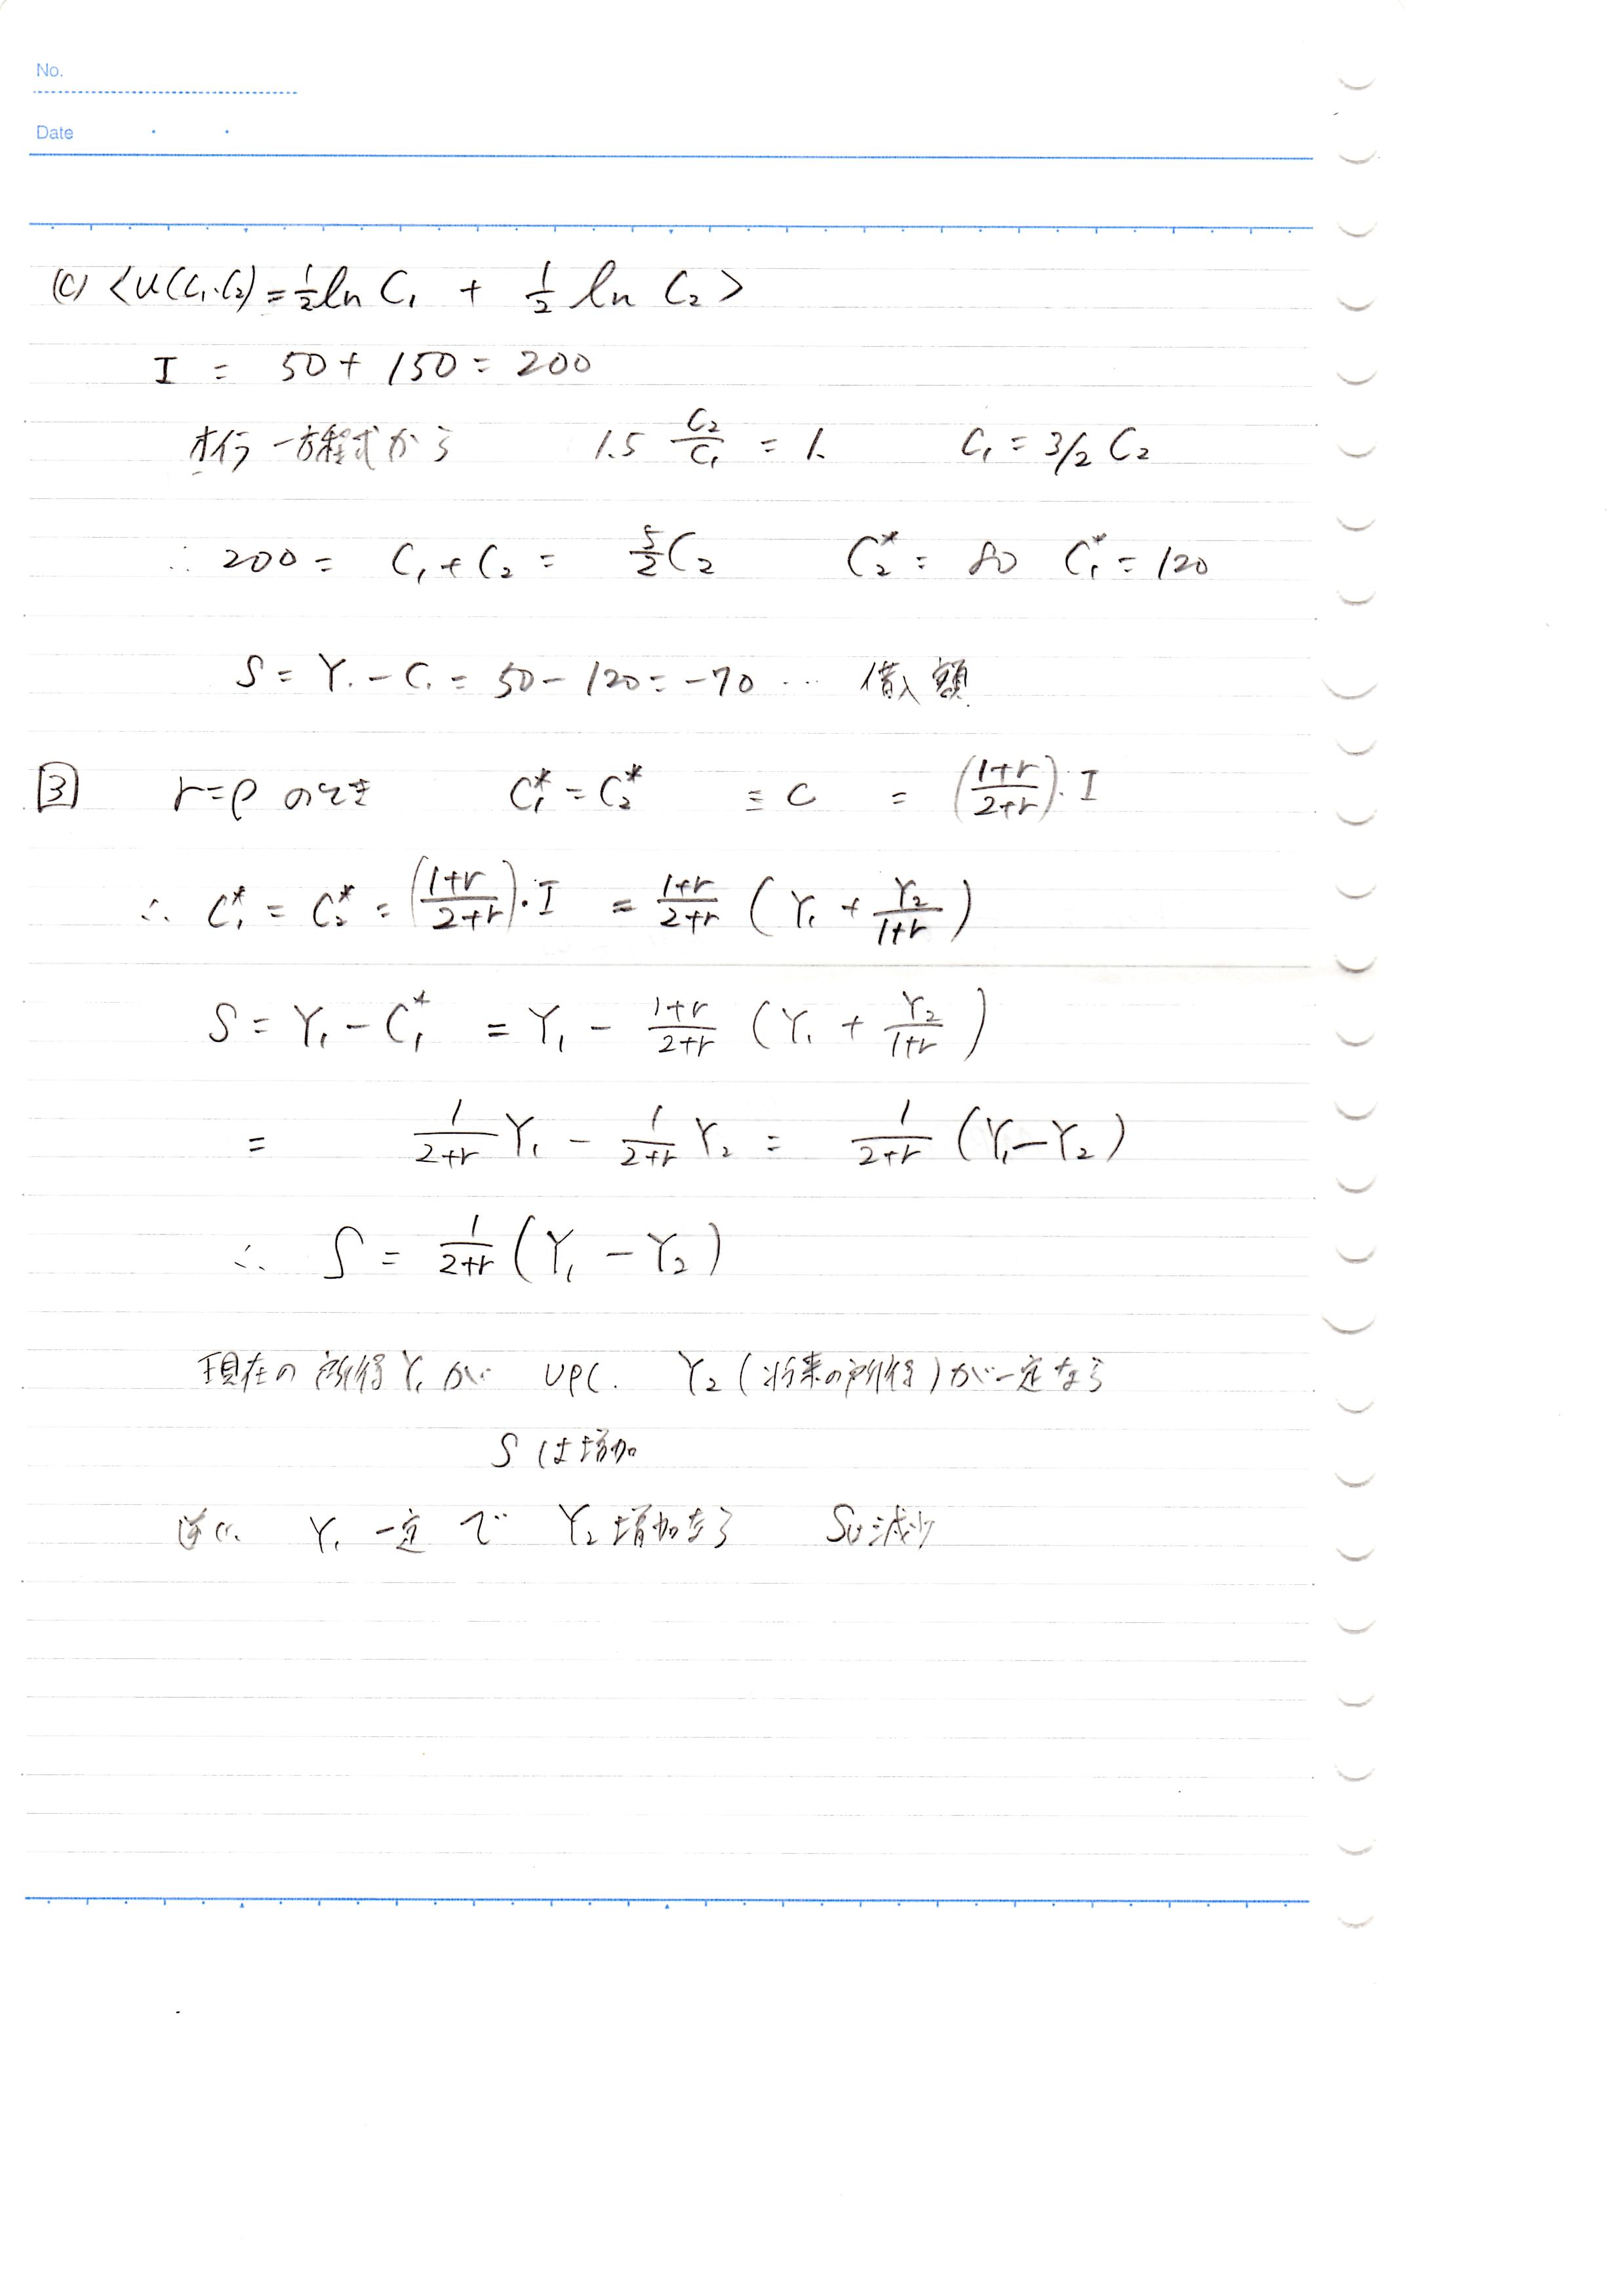 No.
Date
(c) <u(C₁・C₂) = 1/2 ln C₁ + 1/2 ln C₂>
I = 50 + 150 = 200
オイラー方程式から 1.5 C₂/C₁ = 1. C₁ = 3/2 C₂
∴ 200 = C₁ + C₂ = 5/2 C₂ C₂* = 80 C₁* = 120
S = Y₁ - C₁ = 50 - 120 = -70 … 借入額
3 r=ρ のとき C₁* = C₂* ≡ C = ((1+r)/(2+r))・I
∴ C₁* = C₂* = ((1+r)/(2+r))・I = (1+r)/(2+r) (Y₁ + Y₂/(1+r))
S = Y₁ - C₁* = Y₁ - (1+r)/(2+r) (Y₁ + Y₂/(1+r))
= 1/(2+r) Y₁ - 1/(2+r) Y₂ = 1/(2+r) (Y₁ - Y₂)
∴ S = 1/(2+r) (Y₁ - Y₂)
現在の所得Y₁が upし. Y₂ (将来の所得) が一定なら
Sは増加
逆に. Y₁ 一定で Y₂ 増加なら Sは減少